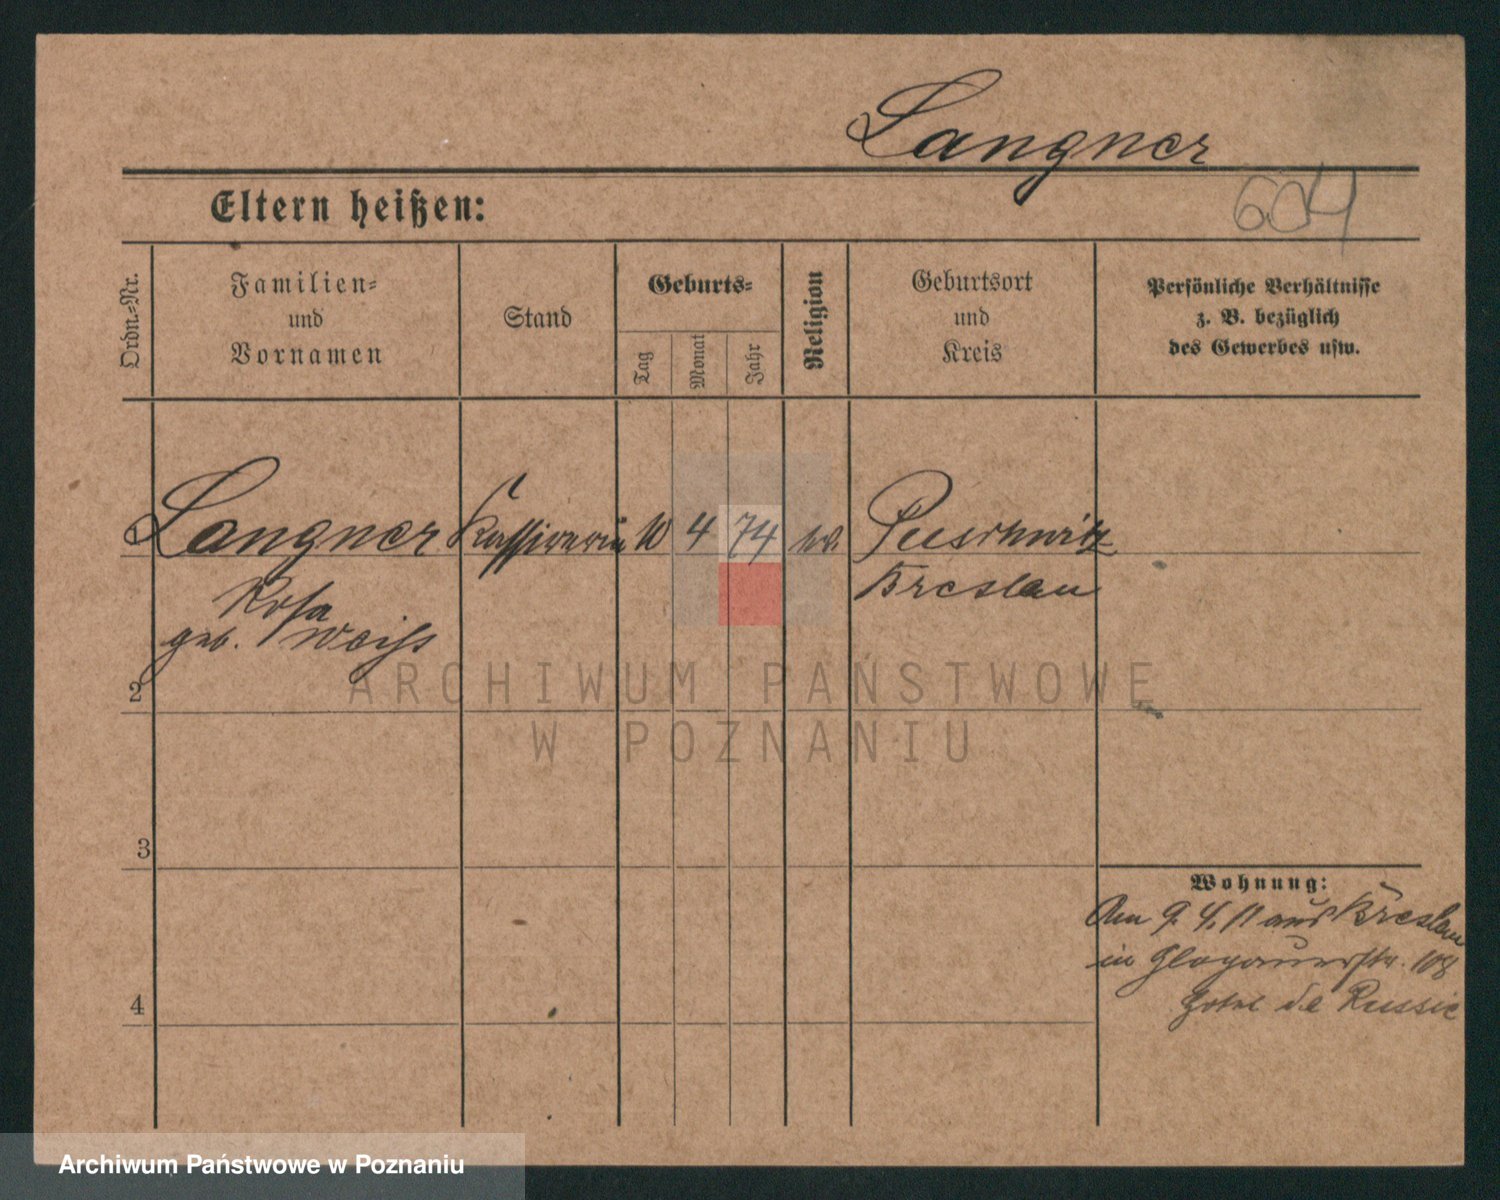 Langner
Eltern heißen:
604
Ordn.-Nr.
Familien-
und
Vornamen
Stand
Geburts-
Tag
Monat
Jahr
Religion
Geburtsort
und
Kreis
Persönliche Verhältnisse
z. B. bezüglich
des Gewerbes usw.
Langner Kassirerin 10 4 74 ev. Puschwitz
Rosa Breslau
geb. Weiss
2
ARCHIWUM PAŃSTWOWE
W POZNANIU
3
Wohnung:
Am 9. 4. 11 aus Breslau
in Glogauerstr. 108
Hotel de Russie
4
Archiwum Państwowe w Poznaniu